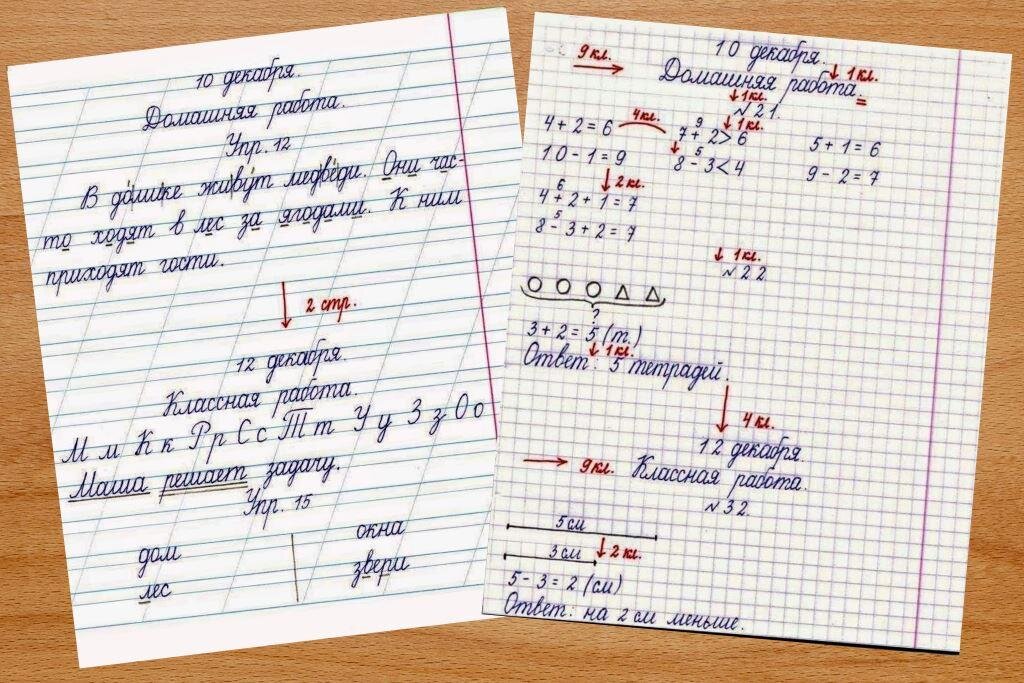 10 декабря.
Домашняя работа.
Упр. 12
В домике живут медведи. Они час-
то ходят в лес за ягодами. К ним
приходят гости.
2 стр.
12 декабря.
Классная работа.
М м К к Р р С с Т т У у З з О о
Маша решает задачу.
Упр. 15
дом
лес
окна
звери
10 декабря.
9 кл.
1 кл.
Домашняя работа.
1 кл.
№ 21.
4 + 2 = 6
4 кл.
9
1 кл.
7 + 2 > 6
5 + 1 = 6
10 - 1 = 9
5
8 - 3 < 4
9 - 2 = 7
2 кл.
6
4 + 2 + 1 = 7
5
8 - 3 + 2 = 7
1 кл.
№ 22.
?
3 + 2 = 5 (т.)
1 кл.
Ответ: 5 тетрадей.
4 кл.
12 декабря.
9 кл.
Классная работа.
№ 32.
5 см
3 см
2 кл.
5 - 3 = 2 (см)
Ответ: на 2 см меньше.